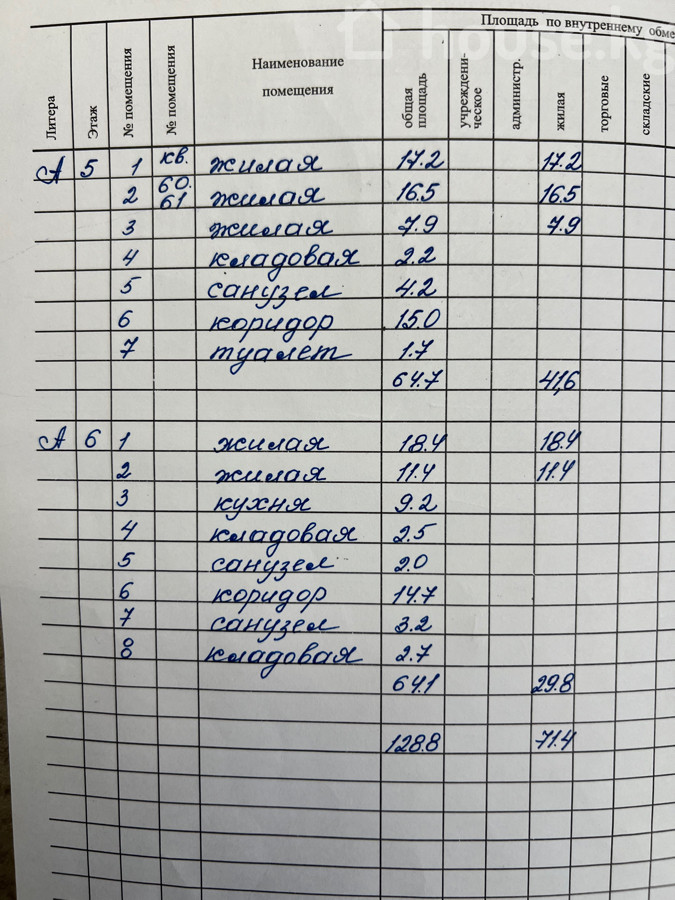 house.kg
Площадь по внутреннему обме
Литера Этаж № помещения № помещения Наименование помещения общая площадь учреждени-ческое администр. жилая торговые складские
А 5 1 кв. жилая 17.2 17.2
2 60. 61 жилая 16.5 16.5
3 жилая 7.9 7.9
4 кладовая 2.2
5 санузел 4.2
6 коридор 15.0
7 туалет 1.7
64.7 41,6
А 6 1 жилая 18.4 18.4
2 жилая 11.4 11.4
3 кухня 9.2
4 кладовая 2.5
5 санузел 2.0
6 коридор 14.7
7 санузел 3.2
8 кладовая 2.7
64.1 29.8
128.8 71.4